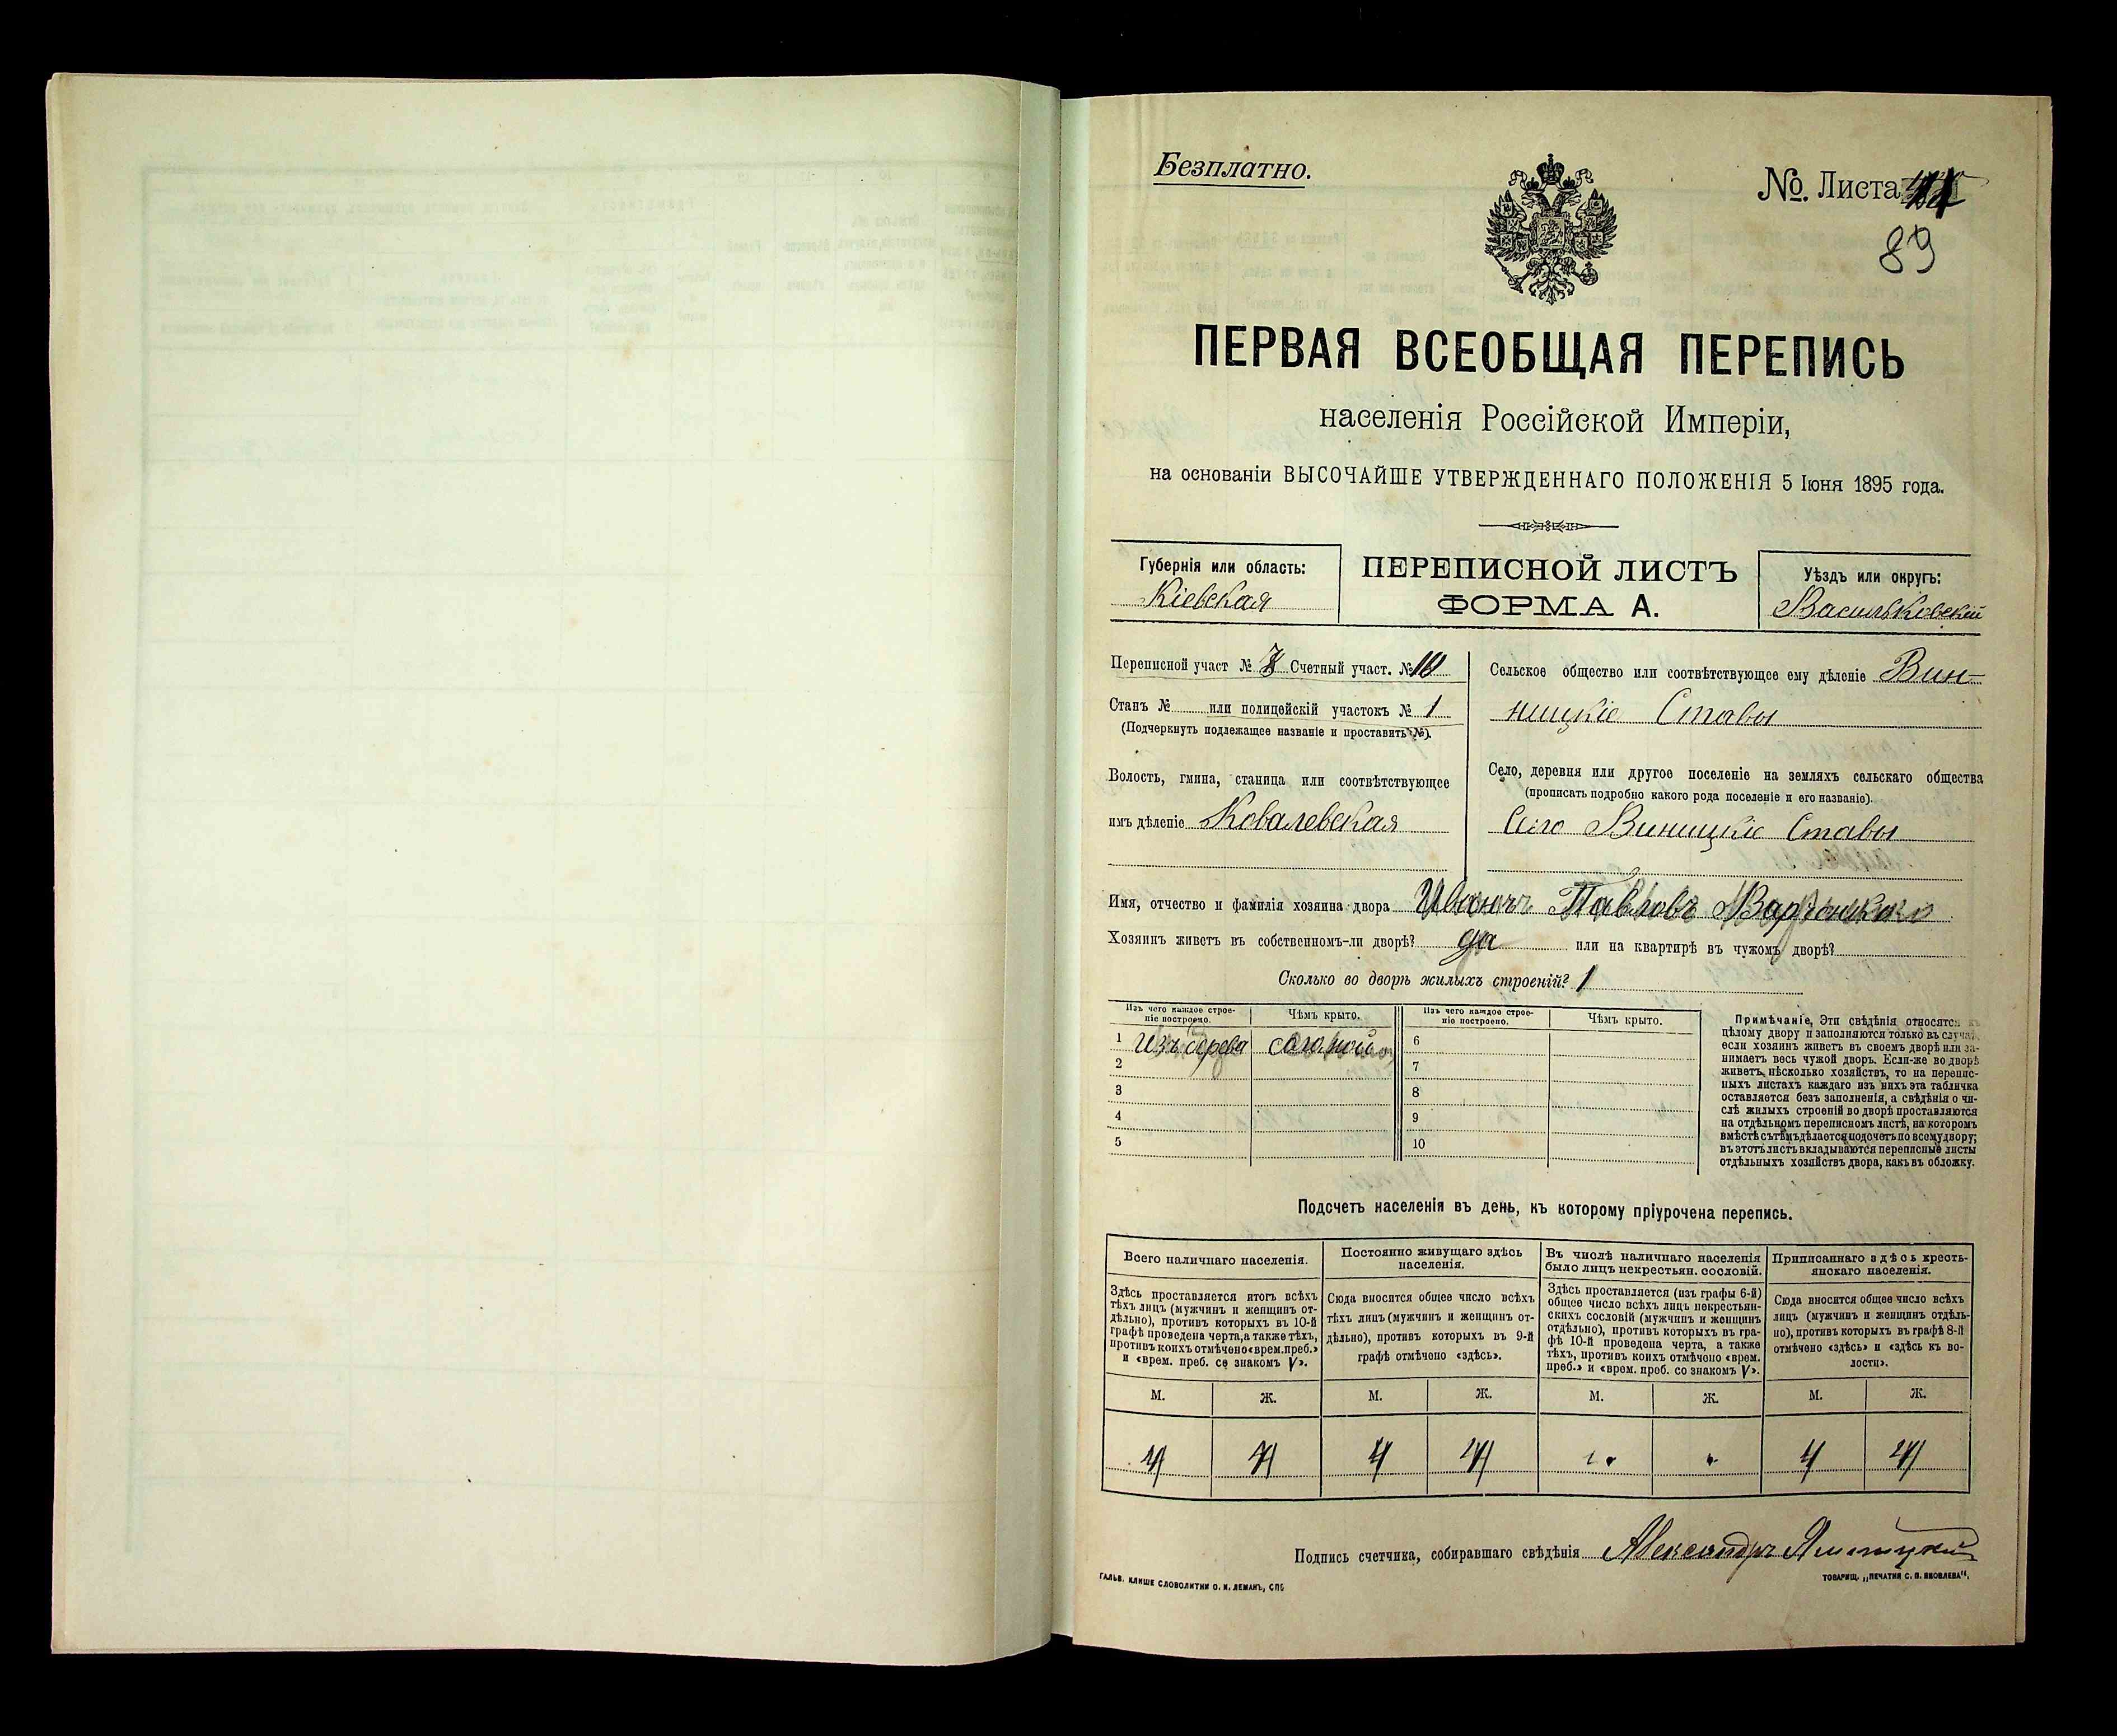 Безплатно.
№. Листа
89
ПЕРВАЯ ВСЕОБЩАЯ ПЕРЕПИСЬ
населенія Россійской Имперіи,
на основаніи ВЫСОЧАЙШЕ УТВЕРЖДЕННАГО ПОЛОЖЕНІЯ 5 Іюня 1895 года.
Губернія или область:
Кіевская
ПЕРЕПИСНОЙ ЛИСТЪ
ФОРМА А.
Уѣздъ или округъ:
Васильковскій
Переписной участ № Счетный участ. № 10
Станъ № или полицейскій участокъ № 1
(Подчеркнуть подлежащее названіе и проставить №).
Волость, гмина, станица или соотвѣтствующее
имъ дѣленіе Ковалевская
Сельское общество или соотвѣтствующее ему дѣленіе Вин-
ницкіе Ставы
Село, деревня или другое поселеніе на земляхъ сельскаго общества
(прописать подробно какого рода поселеніе и его названіе).
Село Виницкіе Ставы
Имя, отчество и фамилія хозяина двора Иванъ Павловъ
Хозяинъ живетъ въ собственномъ-ли дворѣ? да или на квартирѣ въ чужомъ дворѣ?
Сколько во дворѣ жилыхъ строеній? 1
Изъ чего каждое строе-
ніе построено.
Чѣмъ крыто.
1 Изъ дерева соломой
2
3
4
5
Изъ чего каждое строе-
ніе построено.
Чѣмъ крыто.
6
7
8
9
10
Примѣчаніе. Эти свѣдѣнія относятся къ
цѣлому двору и заполняются только въ случаѣ,
если хозяинъ живетъ въ своемъ дворѣ или за-
нимаетъ весь чужой дворъ. Если-же во дворѣ
живетъ нѣсколько хозяйствъ, то на перепис-
ныхъ листахъ каждаго изъ нихъ эта табличка
оставляется безъ заполненія, а свѣдѣнія о чи-
слѣ жилыхъ строеній во дворѣ проставляются
на отдѣльномъ переписномъ листѣ, на которомъ
вмѣстѣ съ тѣмъ дѣлается подсчетъ по всему двору;
въ этотъ листъ вкладываются переписные листы
отдѣльныхъ хозяйствъ двора, какъ въ обложку.
Подсчетъ населенія въ день, къ которому пріурочена перепись.
Всего наличнаго населенія.
Здѣсь проставляется итогъ всѣхъ
тѣхъ лицъ (мужчинъ и женщинъ от-
дѣльно), противъ которыхъ въ 10-й
графѣ проведена черта, а также тѣхъ,
противъ коихъ отмѣчено «врем. преб.»
и «врем. преб. со знакомъ V».
Постоянно живущаго здѣсь
населенія.
Сюда вносится общее число всѣхъ
тѣхъ лицъ (мужчинъ и женщинъ от-
дѣльно), противъ которыхъ въ 9-й
графѣ отмѣчено «здѣсь».
Въ числѣ наличнаго населенія
было лицъ некрестьян. сословій.
Здѣсь проставляется (изъ графы 6-й)
общее число всѣхъ лицъ некрестьян-
скихъ сословій (мужчинъ и женщинъ
отдѣльно), противъ которыхъ въ гра-
фѣ 10-й проведена черта, а также
тѣхъ, противъ коихъ отмѣчено «врем.
преб.» и «врем. преб. со знакомъ V».
Приписаннаго здѣсь кресть-
янскаго населенія.
Сюда вносится общее число всѣхъ
лицъ (мужчинъ и женщинъ отдѣль-
но), противъ которыхъ въ графѣ 8-й
отмѣчено «здѣсь» и «здѣсь къ во-
лости».
М. Ж. М. Ж. М. Ж. М. Ж.
4 4 4 4 4 4
Подпись счетчика, собиравшаго свѣдѣнія Александръ
ГАЛЬВ. КЛИШЕ СЛОВОЛИТНИ О. И. ЛЕМАНЪ, СПБ
ТОВАРИЩ. „ПЕЧАТНЯ С. П. ЯКОВЛЕВА“.